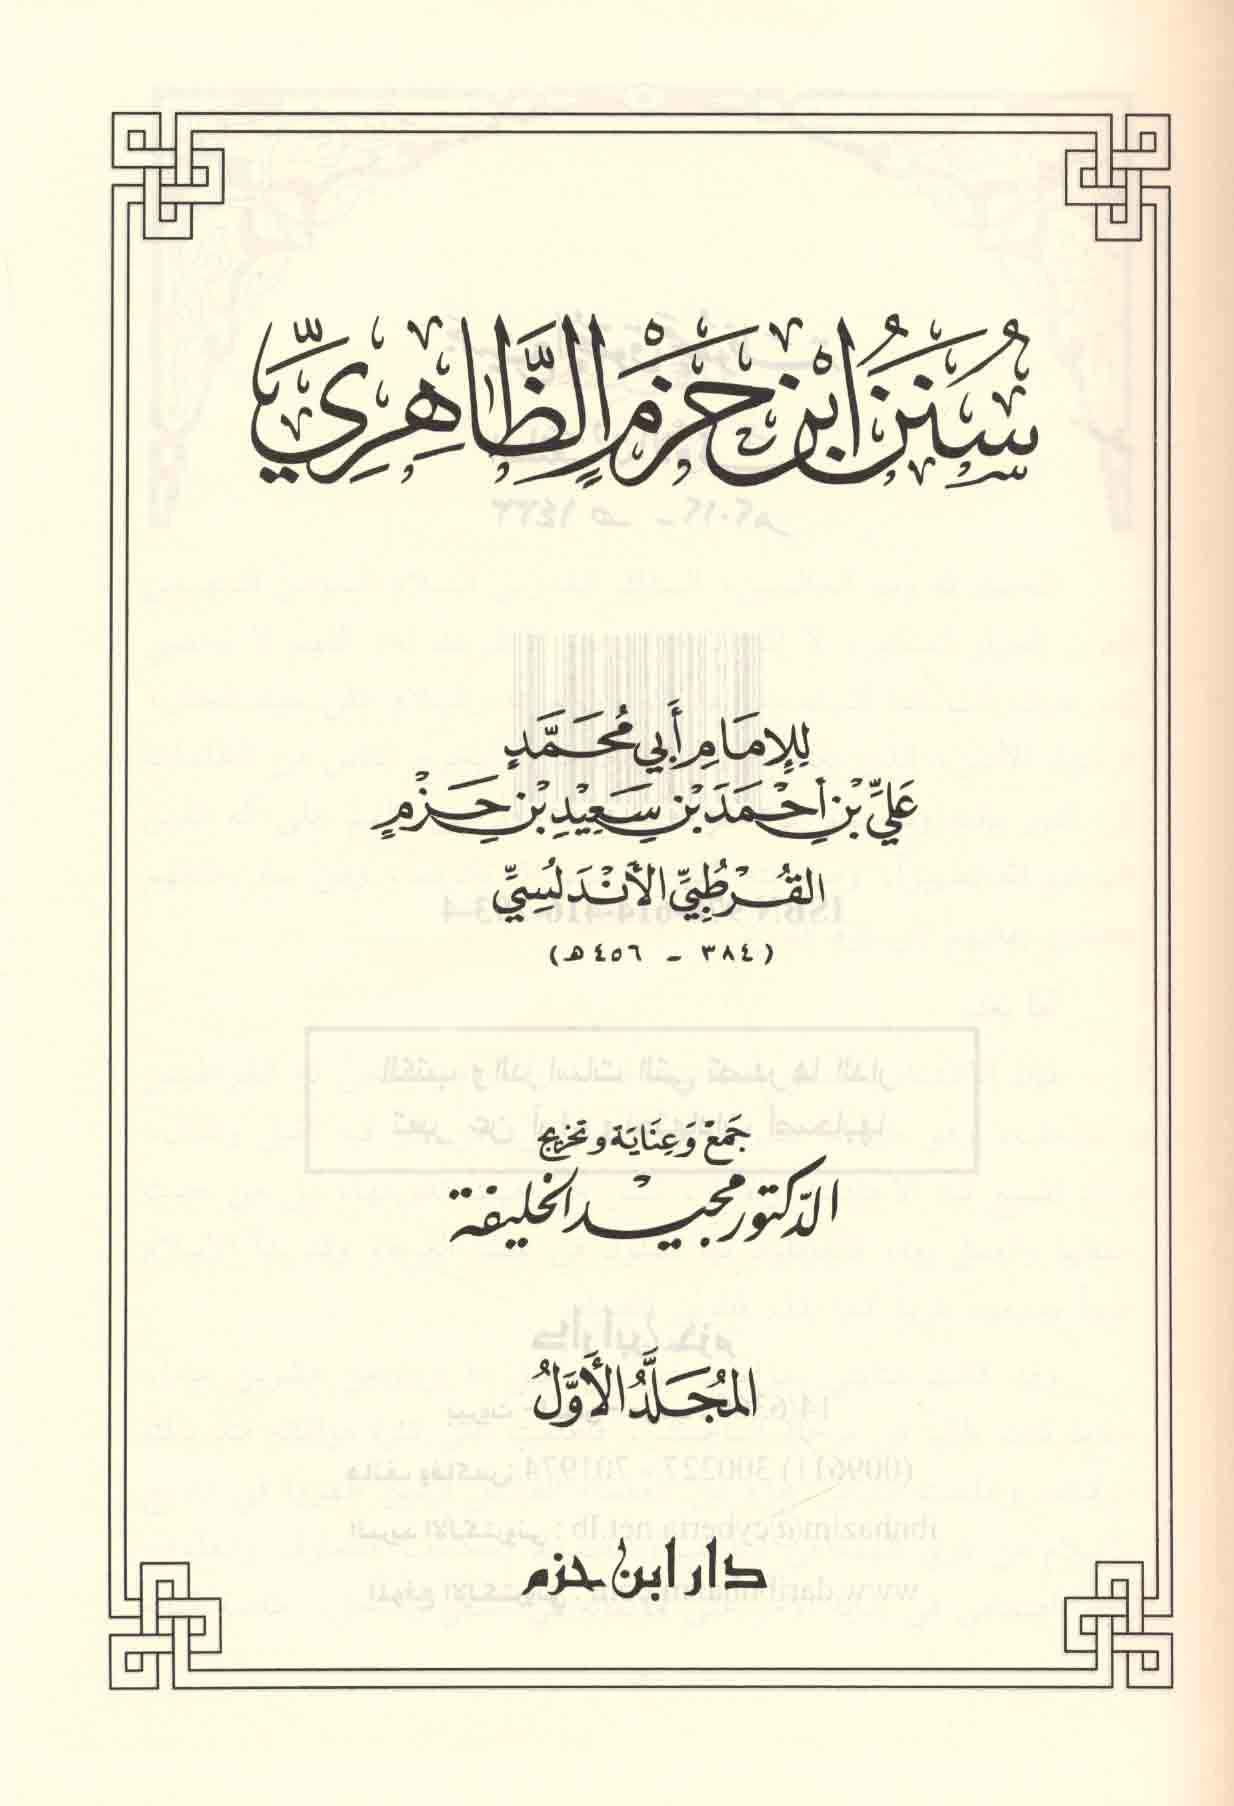 سُنَنُ ابْنِ حَزْمٍ الظَّاهِرِيِّ
لِلإِمَامِ أَبِي مُحَمَّدٍ
عَلِيِّ بْنِ أَحْمَدَ بْنِ سَعِيدِ بْنِ حَزْمٍ
القُرْطُبِيِّ الأَنْدَلُسِيِّ
(٣٨٤ - ٤٥٦ه)
جَمْعُ وَعِنَايَة وَتَخْرِيج
الدّكتور مجيد الخليفة
المُجَلَّدُ الأَوَّلُ
دار ابن حزم